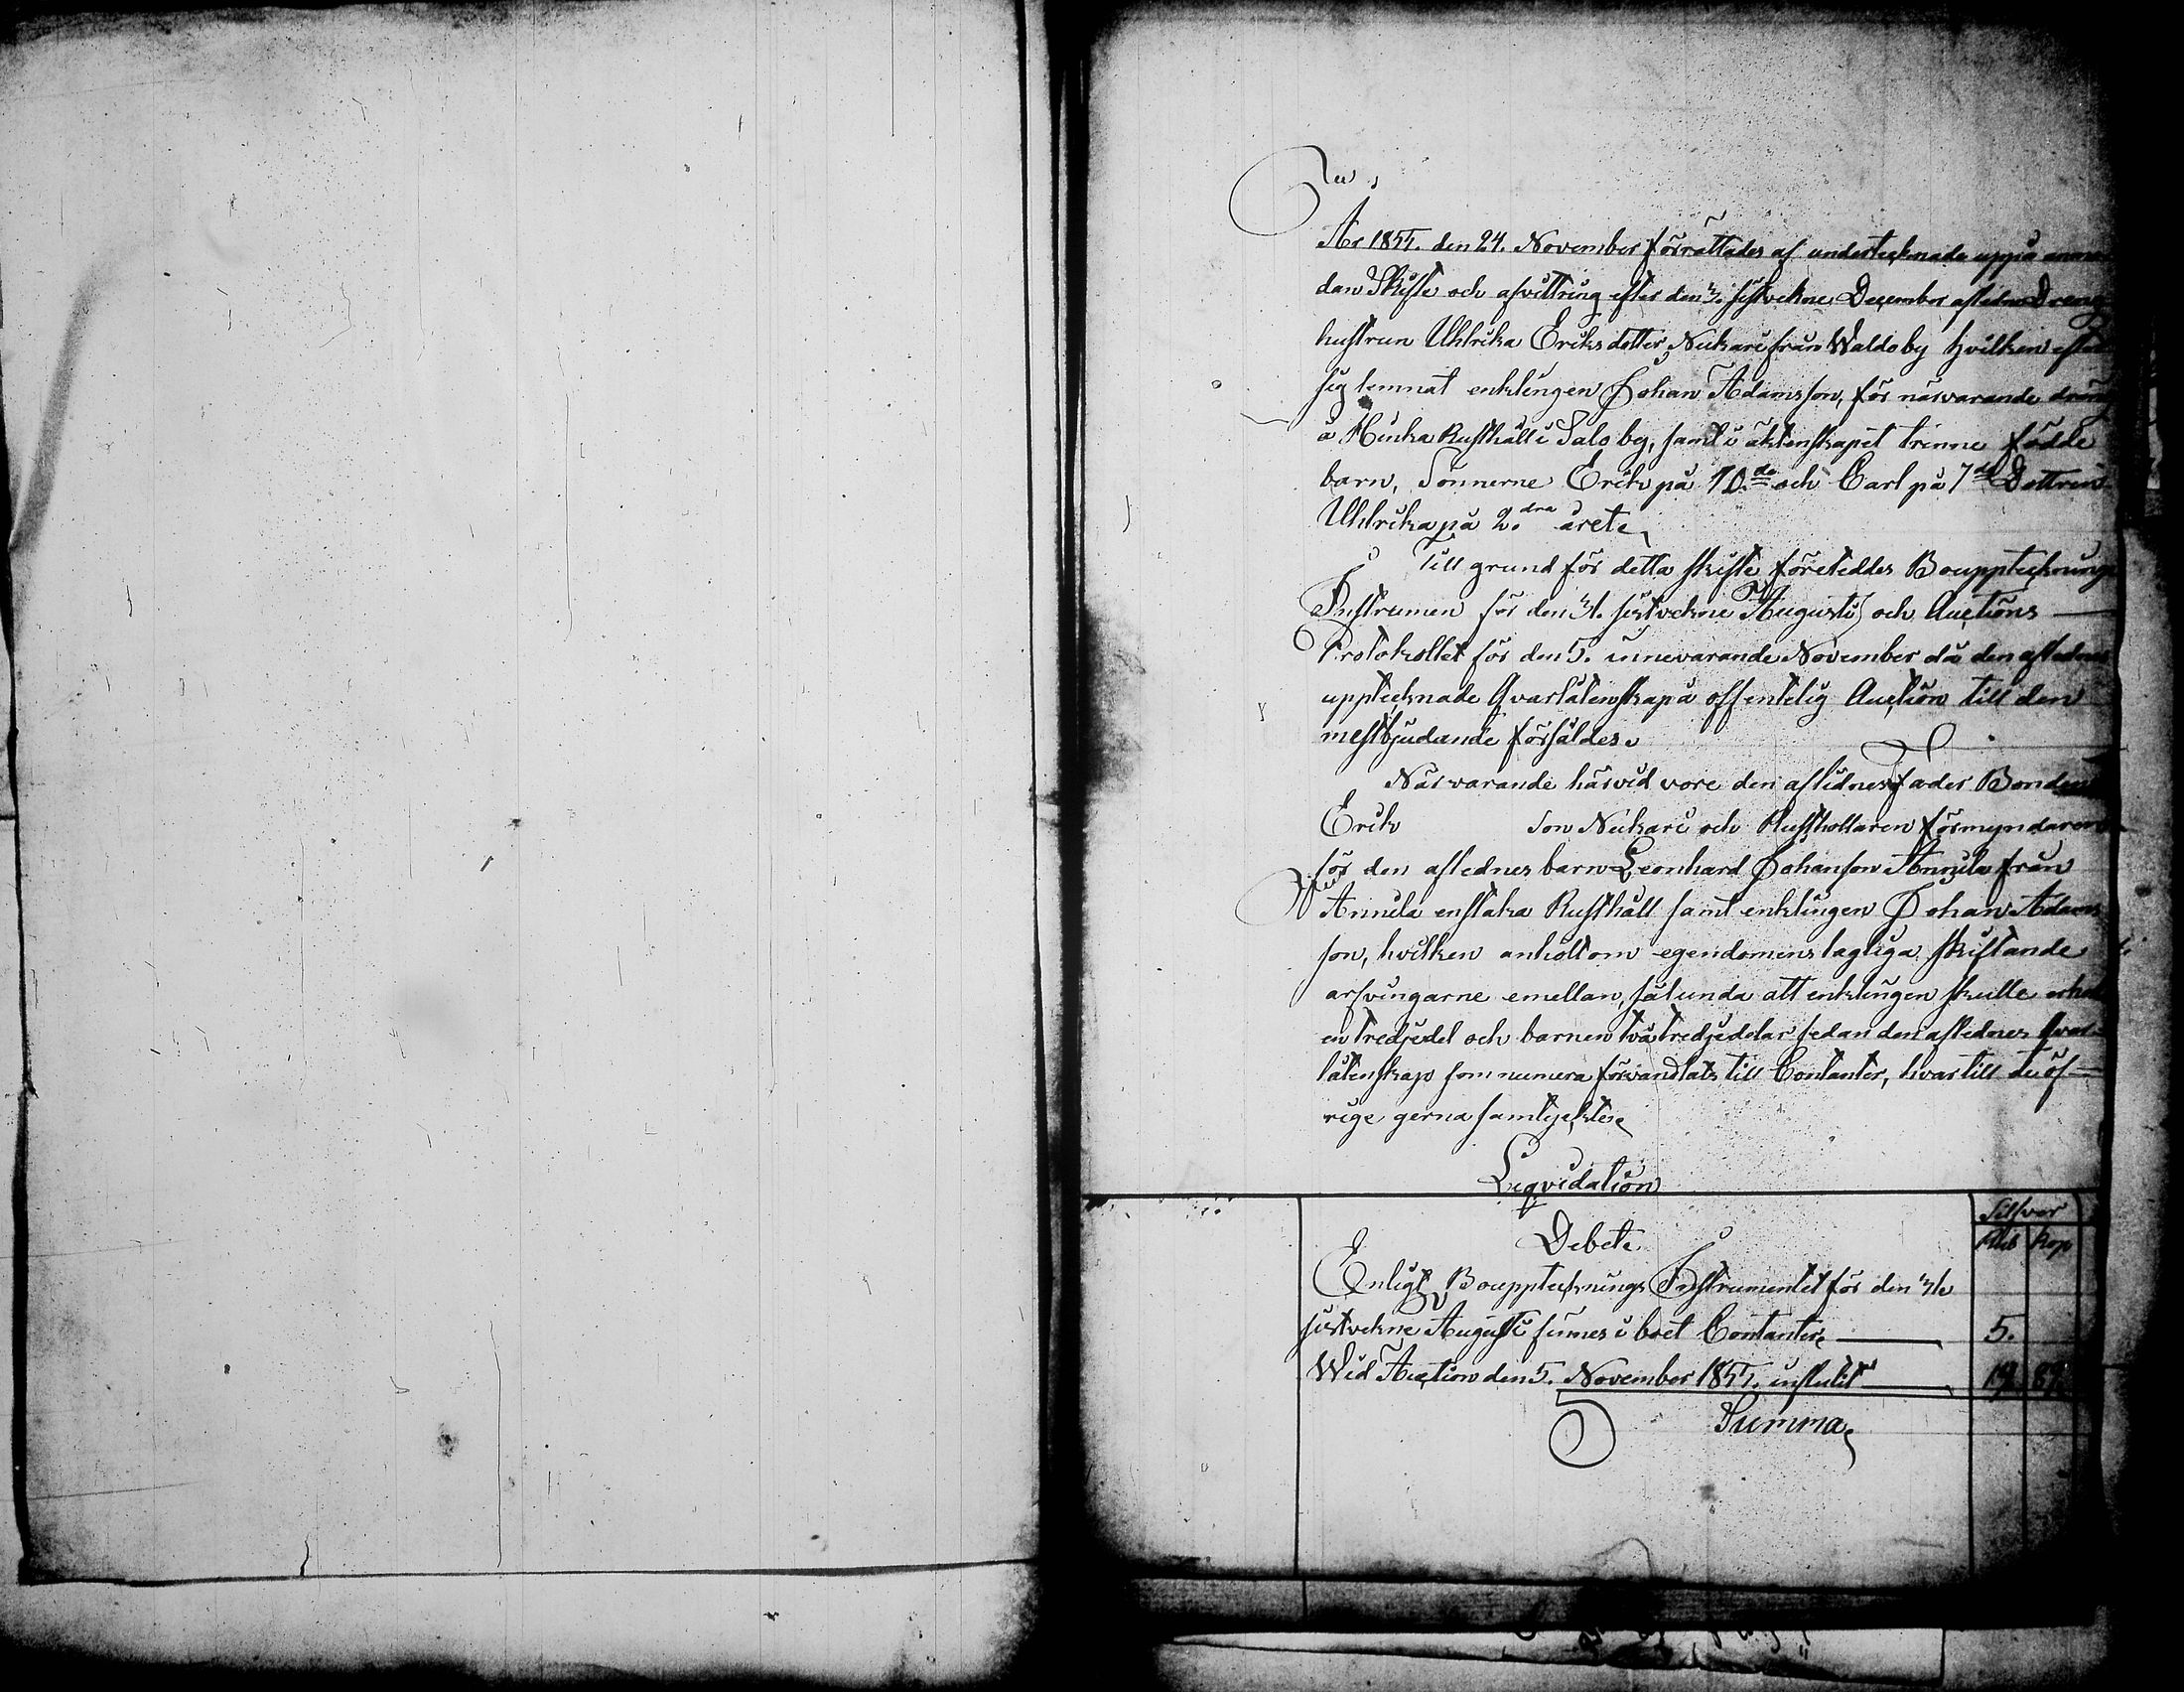 År 1855. den 24. November förrättades af undertecknade uppå anmo-
dan Skifte och afvittring efter den 3. sistvekne December aflidne Dreng
hustrun Uhlrika Eriksdotter Nickari från Waldo by hvilken efter
sig lemnat enklingen Johan Adamsson, för närvarande dräng
å Hinka Rusthåll i Salo by, samt i äktenskapet trenne födde
barn, Sönnerne Erik på 10.de och Carl på 7de Dottren
Uhlrika på 2.dra året.
Till grund för detta skifte företeddes Boupptecknings
Instrumen för den 31. sistvekne Augusti och Auctions
Protokollet för den 5. innevarande November då den aflednes
upptecknade Qvarlåtenskap å offentelig Auction till den
mestbjudande försåldes.
Närvarande härvid vore den aflidnes fader Bonden
Erik son Nickari och Rusthollaren förmyndaren
för den aflednes barn Leonhard Johanson Annila från
Annila enstaka Rusthåll samt enklingen Johan Adams
son, hvilken anhölt om egendomens lagliga skiftande
arfvingarne emellan, sålunda att enklingen skulle erhål
en tredjedel och barnen två tredjedelar sedan den aflednes Qvar-
låtenskap som numera förvandlats till Contanter, hvartill de öf-
rige gerna samtyckte.
Liqvidation
Silfver
Debet.
Rub Kop
Enligt Boupptecknings Instrumentet för den 31.
sistvekne Augusti finnes i boet Contanter 5.
Wid Auction den 5. November 1855. influtit 19 87
Summa